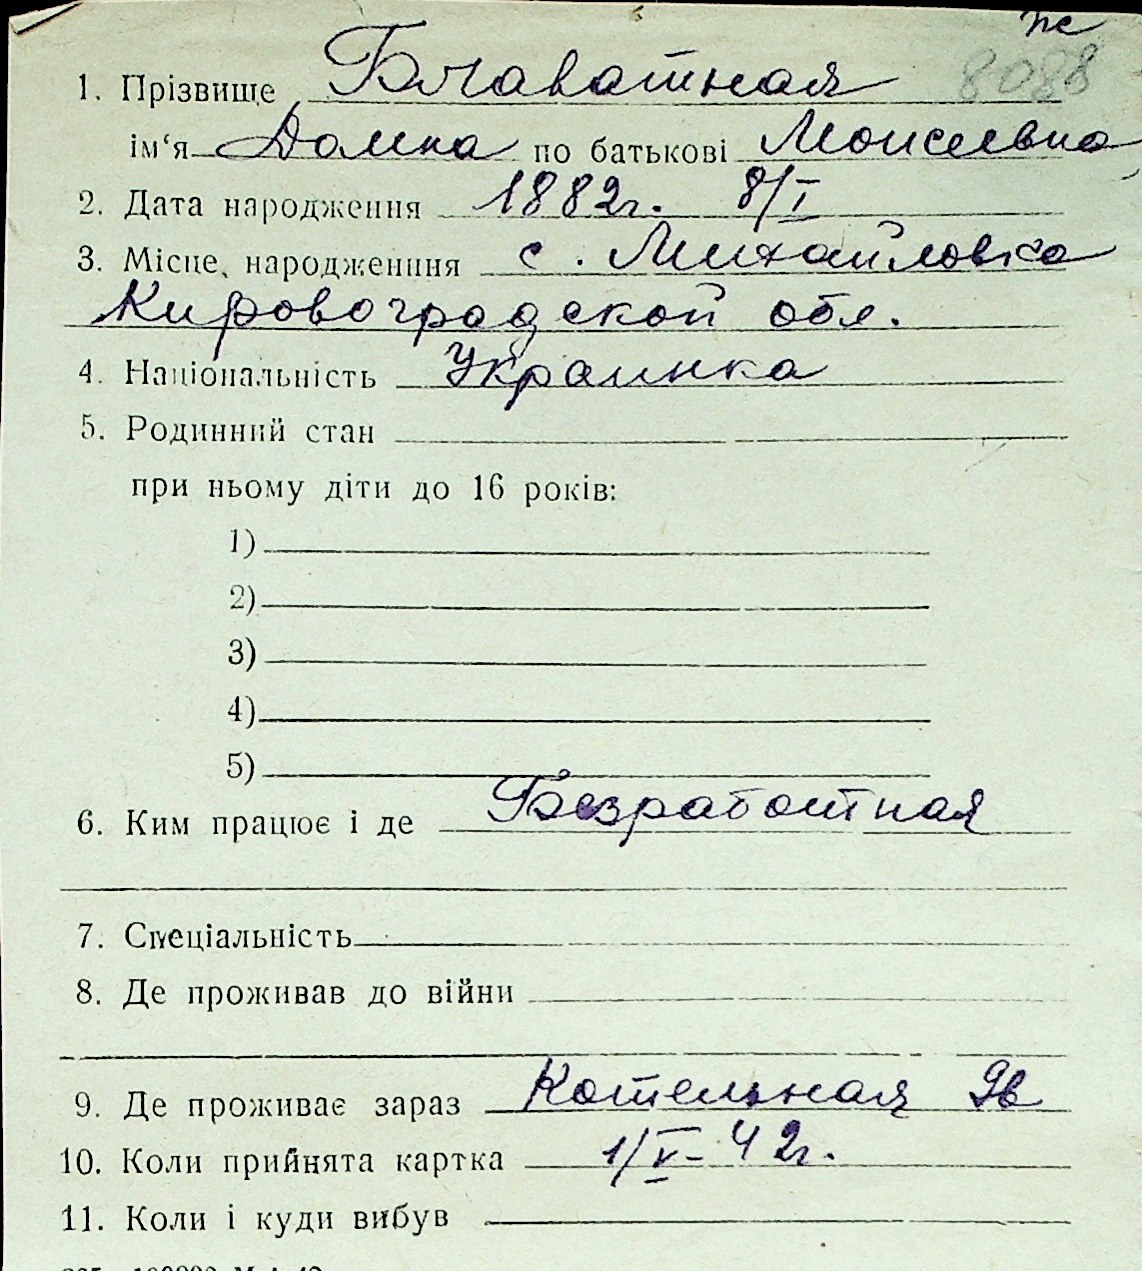 пс
8088
1. Прізвище Блаватная
ім‘я Домна по батькові Моисеевна
2. Дата народження 1882г. 8/I
3. Місце народженння с. Михайловка
Кировоградской обл.
4. Національність Украинка
5. Родинний стан
при ньому діти до 16 років:
1)
2)
3)
4)
5)
6. Ким працює і де Безработная
7. Спеціальність
8. Де проживав до війни
9. Де проживає зараз Котельная 9в
10. Коли прийнята картка 1/V-42г.
11. Коли і куди вибув